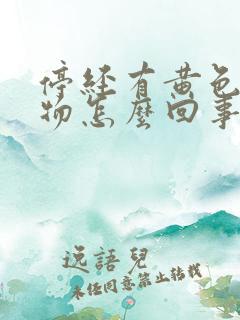 停经有黄色
物怎麽回事
逸語兒
未经同意禁止转载